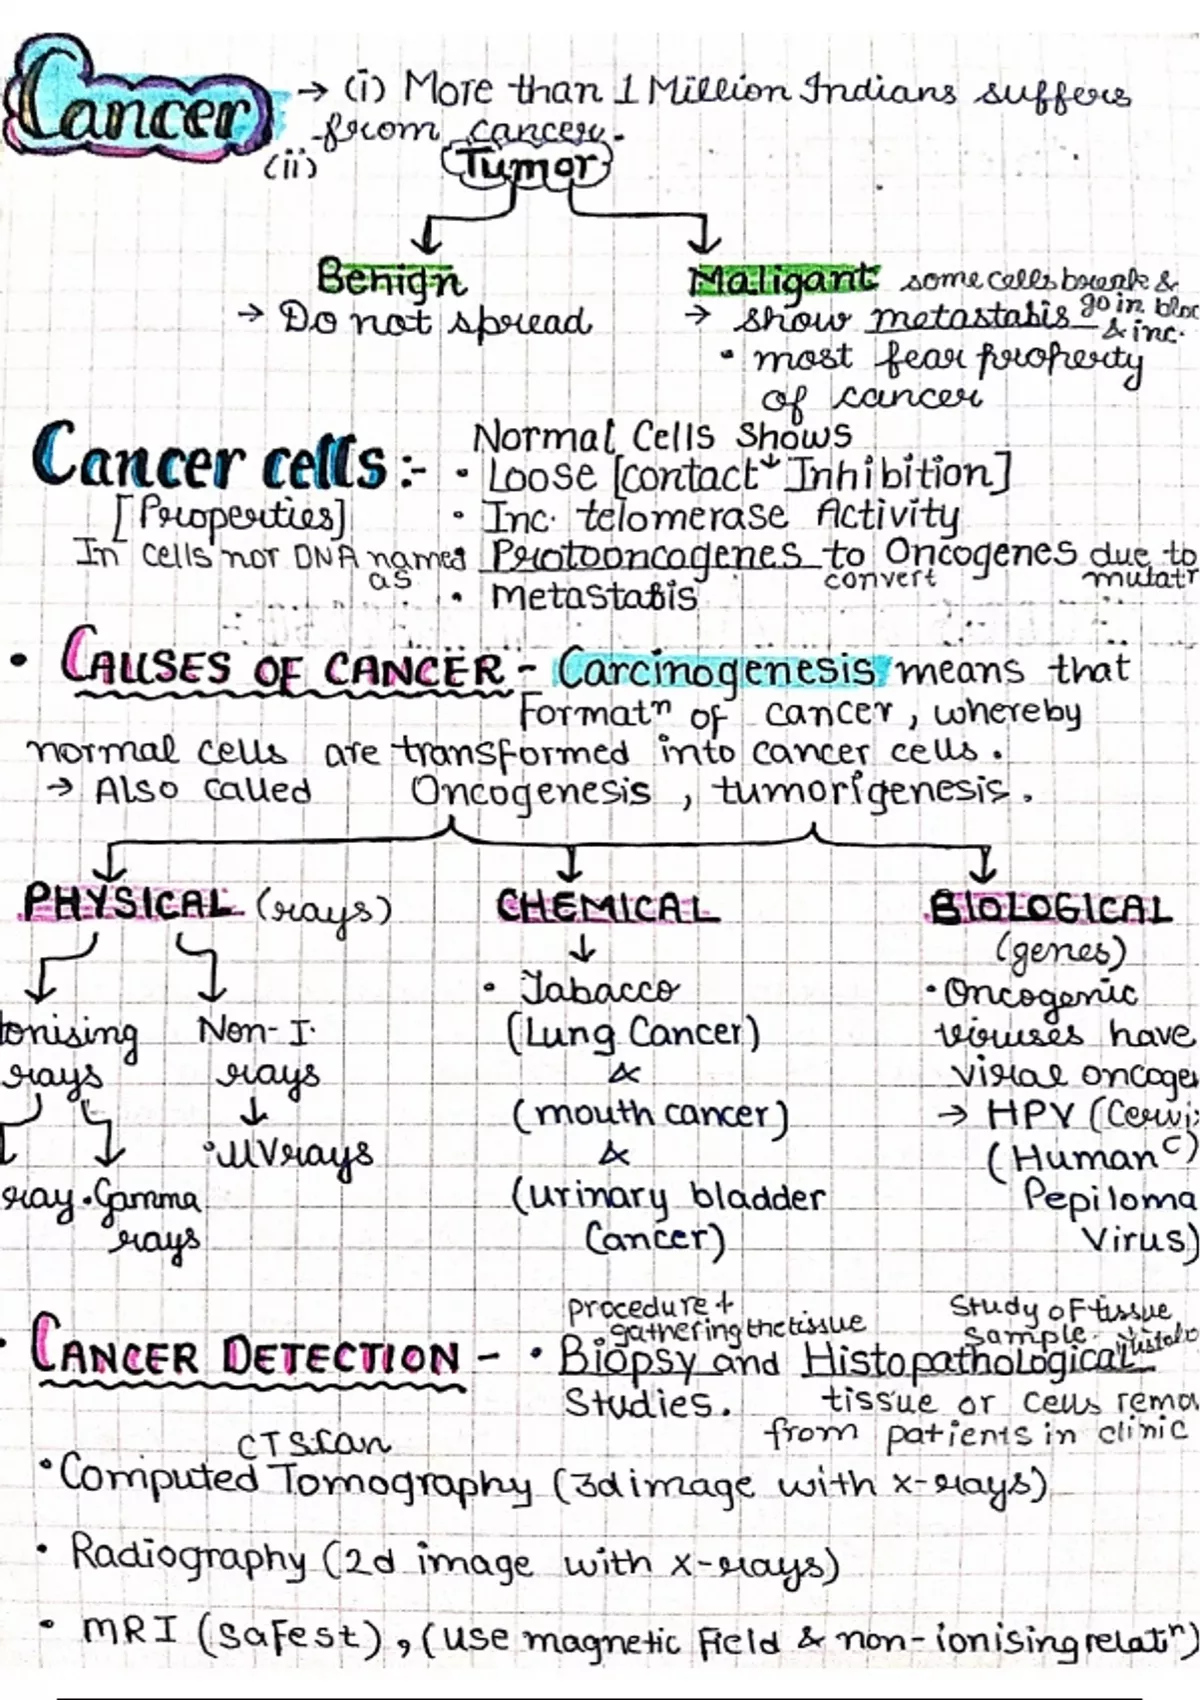 Cancer → (i) More than 1 Million Indians suffers
from cancer.
(ii) Tumor
Benign
Maligant some cells break &
→ Do not spread
→ show metastabis go in bloo
& inc.
• most fear property
of cancer
Normal Cells Shows
Cancer cells :- • Loose [contact Inhibition]
[Properties] • Inc. telomerase Activity
In cells nor DNA named Protooncogenes to Oncogenes due to
as convert mutatn
• Metastabis
• CAUSES OF CANCER - Carcinogenesis means that
Formatn of cancer, whereby
normal cells are transformed into cancer cells.
→ Also called Oncogenesis, tumorigenesis.
PHYSICAL (rays) CHEMICAL BIOLOGICAL
(genes)
• Tabacco • Oncogenic
Ionising Non-I. (Lung Cancer) viruses have
rays rays & viral oncoge
(mouth cancer) → HPV (Cervi
• UVrays & (Human C)
ray • Gamma (urinary bladder Pepiloma
rays Cancer) Virus)
procedure + Study of tissue
gathering the tissue sample.
• CANCER DETECTION - • Biopsy and Histopathological
Studies. tissue or cells remo
from patients in clinic
CT Scan
• Computed Tomography (3d image with x-rays)
• Radiography (2d image with x-rays)
• MRI (Safest), (use magnetic Field & non-ionising relatn)